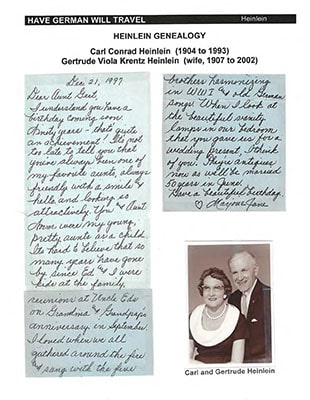 HAVE GERMAN WILL TRAVEL
Heinlein
HEINLEIN GENEALOGY
Carl Conrad Heinlein (1904 to 1993)
Gertrude Viola Krentz Heinlein (wife, 1907 to 2002)
Dec 21, 1997
Dear Aunt Gert,
I understand you have a
birthday coming soon.
Ninety years - that's quite
an achievement! It's not
too late to tell you that
you've always been one of
my favorite aunts, always
friendly with a smile &
hello and looking so
attractively. You & Aunt
were my young,
pretty aunts as a child.
It's hard to believe that so
many years have gone
by since Ed & I were
kids at the family
reunions at Uncle Eds
on Grandma & Grandpa's
anniversary in September.
I loved when we all
gathered around the fire
& sang with the five
brothers harmonizing
in WWI & old German
songs! When I look at
the beautiful vanity
lamps in our bedroom
that you gave us for a
wedding present, I think
of you! They're antiques
now as we'll be married
50 years in June!
Have a beautiful birthday.
♡ Marjorie Jane
Carl and Gertrude Heinlein